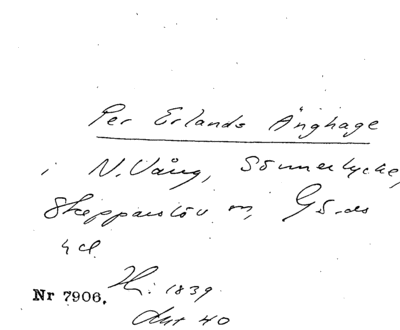 Per Erlands Änghage
i N. Vång, Sönnerlycke,
Skepparslöv sn, Gs.ds
hd.
H: 1839
Nr 7906.
Akt 40